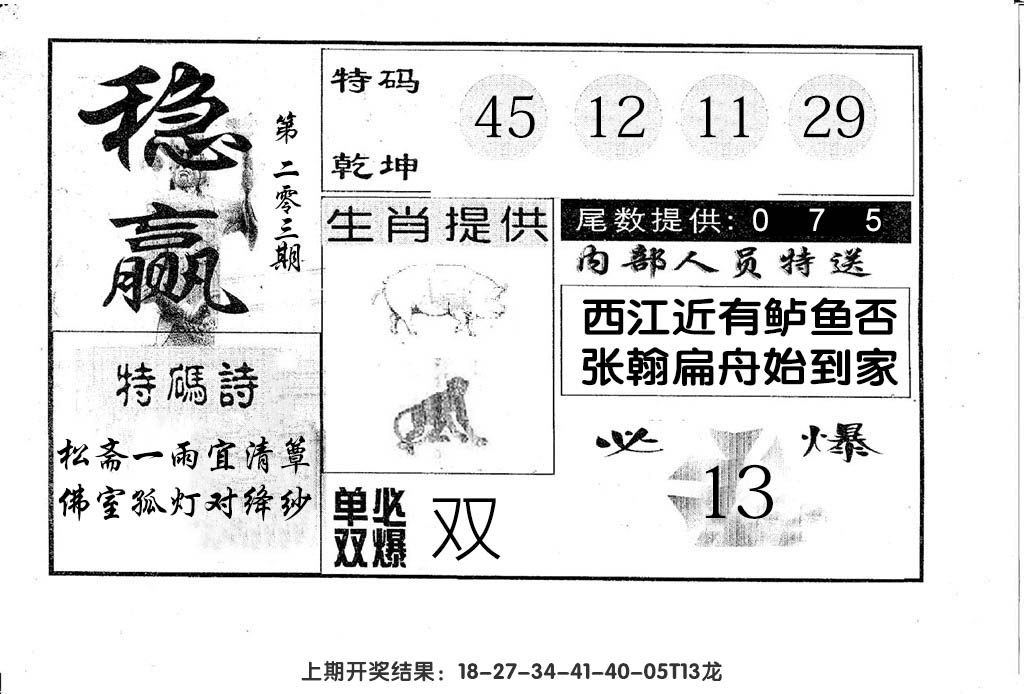 稳赢
第二零三期
特码
乾坤
45 12 11 29
生肖提供
尾数提供: 0 7 5
内部人员特送
西江近有鲈鱼否
张翰扁舟始到家
特碼詩
松斋一雨宜清簟
佛室孤灯对绛纱
单双
必爆
双
必爆
13
上期开奖结果：18-27-34-41-40-05T13龙